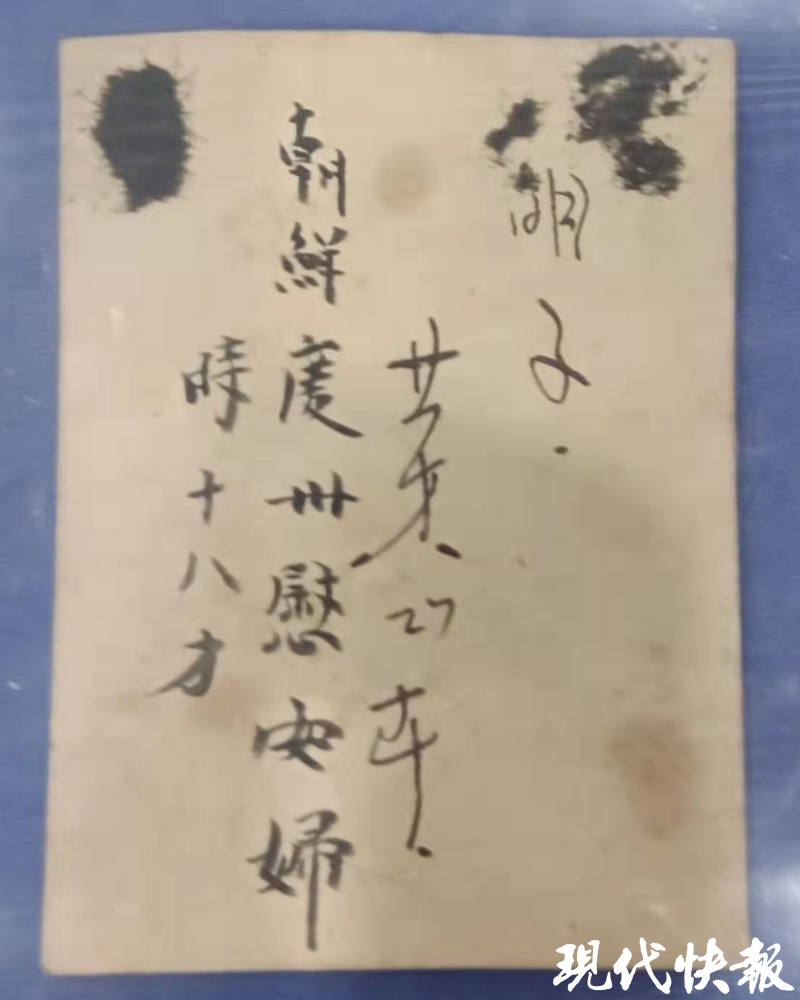 明子.
27年.
朝鮮慶州慰安婦
時十八才
現代快報